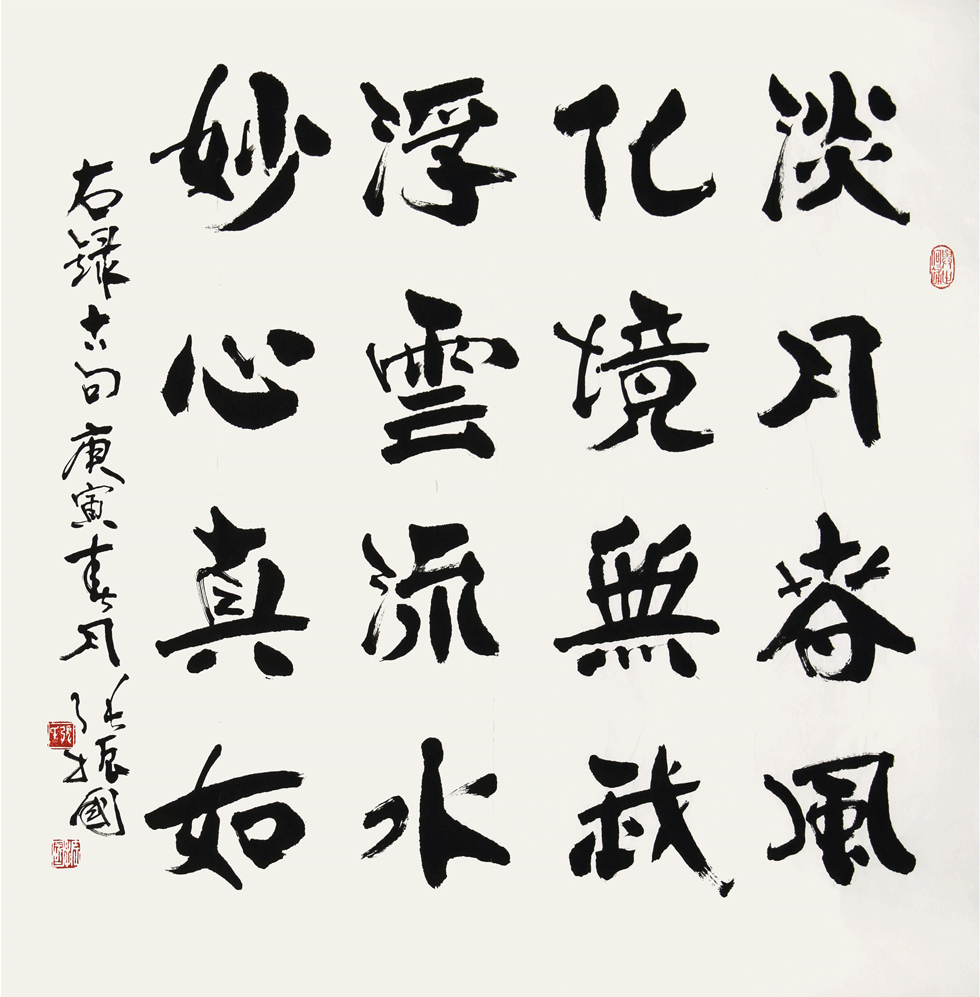 淡月春風
化境無武
浮雲流水
妙心真如
右錄古句庚寅春月張振國